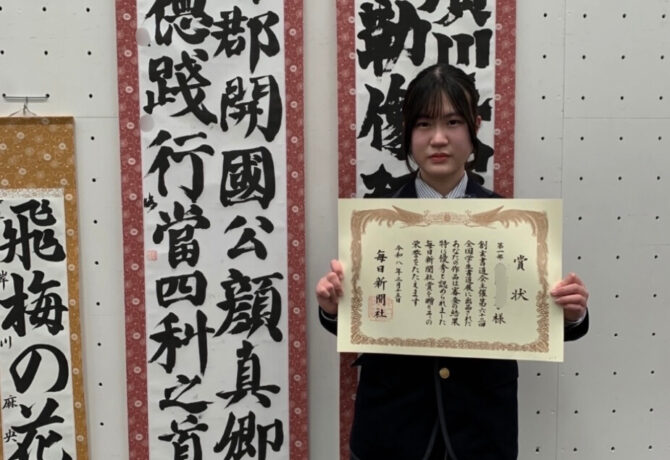 勒像
賞状
第一部
様
創玄書道会主催第六十二回
全国学生書道展に出品された
あなたの作品は審査の結果
特に優秀と認められました
毎日新聞社賞を贈りその
栄誉をたたえます
令和八年
毎日新聞社
郡開國公顏真卿
德踐行當四科之首
飛梅の花
岸川麻央